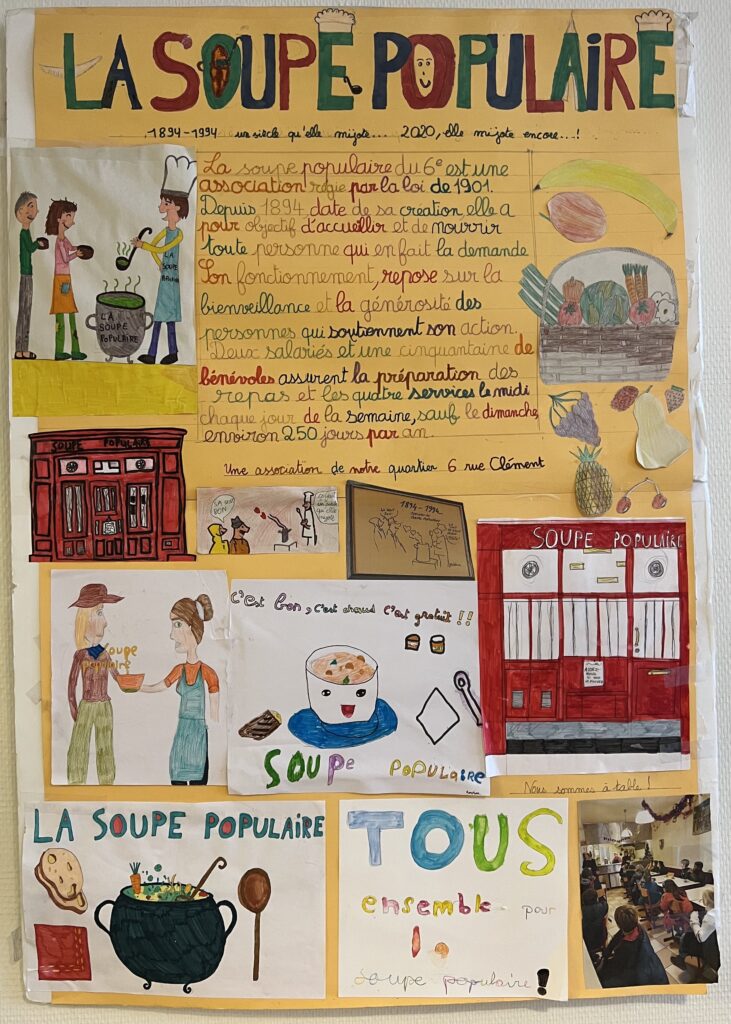 LA SOUPE POPULAIRE
1894-1994 un siècle qu'elle mijote... 2020, elle mijote encore...!
La soupe populaire du 6e est une
association régie par la loi de 1901.
Depuis 1894, date de sa création, elle a
pour objectif d'accueillir et de nourrir
toute personne qui en fait la demande
Son fonctionnement, repose sur la
bienveillance et la générosité des
personnes qui soutionnent son action.
Deux salariés et une cinquantaine de
bénévoles assurent la préparation des
repas et les quatre services le midi
chaque jour de la semaine, sauf le dimanche,
environ 250 jours par an.
Une association de notre quartier 6 rue Clément
LA SOUPE
POPULAIRE
LA
SOUPE
POPULAIRE
SOUPE POPULAIRE
SA SENT
BON
1894-1994
SOUPE POPULAIRE
Soupe
populaire
C'est bon, c'est chaud c'est gratuit !!
SOUPe POPULAIRE
Nous sommes à table !
LA SOUPE POPULAIRE
TOUS
ensemble pour
la
soupe populaire!